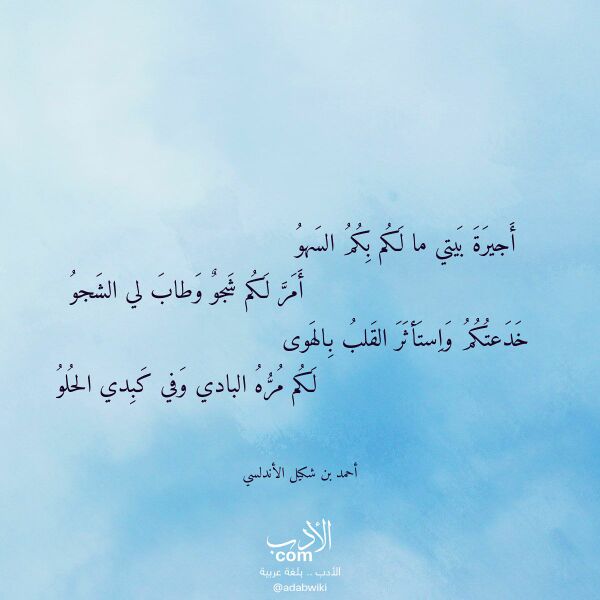 أَجيرَةَ بَيتي ما لَكُم بِكُمُ السَهوُ
أَمَرَّ لَكُم شَجوٌ وَطابَ لي الشَجوُ
خَدَعتُكُمُ وَاِستَأثَرَ القَلبُ بِالهَوى
لَكُم مُرُّهُ البادي وَفي كَبِدي الحُلوُ
أحمد بن شكيل الأندلسي
الأدب
com
الأدب .. بلغة عربية
@adabwiki